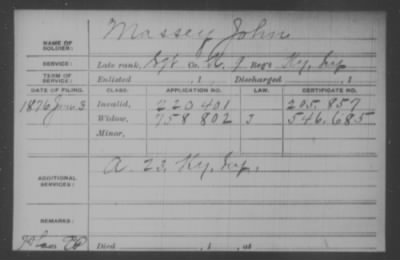 NAME OF SOLDIER: Massey John
SERVICE: Late rank, Sgt Co. K, 7 Reg't Ky. Inf
TERM OF SERVICE: Enlisted , 1 Discharged , 1
DATE OF FILING. CLASS. APPLICATION NO. LAW. CERTIFICATE NO.
1876 Jan. 3 Invalid, 220 401 205.857
Widow, 758 802 J 546.685
Minor,
ADDITIONAL SERVICES: A. 23, Ky. Inf.
REMARKS:
Died , 1 , at